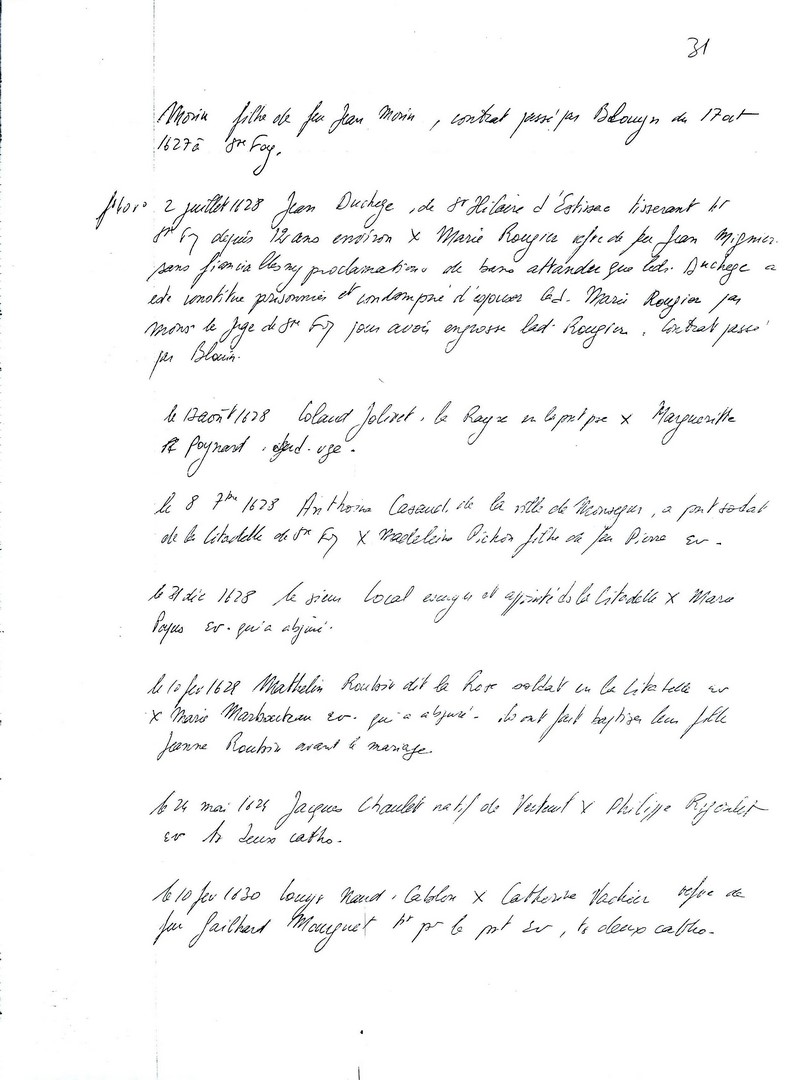 31
Morin filhe de feu Jean Morin, contrat passé par Blouyn du 17 oct
1627 à Ste Foy.
2 juillet 1628 Jean Duchege, de St Hilaire d'Estissac tisserant ht
Ste Foy depuis 12 ans environ x Marie Rougier vefve de feu Jean Mignier
sans proclamations de bans attandeu que led. Duchege a
été constitué prisonnier et condampné d'espouser lad. Marie Rougier par
mons le juge de Ste Foy pour avoir engrossé lad. Rougier, contrat passé
par Blouin.
le 13 août 1628 Coland Jolivet, la Rayre en la pnt psse x Margueritte
Poynard
le 8 7bre 1628 Anthoine Casaud de la ville de Monsegur, a pnt soldat
de la Citadelle de Ste Foy x Madeleine Pichon filhe de feu Pierre ev.
le 31 dic 1628 le sieur Local et appointé de la Citadelle x Marie
Poyus ev. qui a abjuré.
le 10 fev 1629 Mathelin Roubin dit la Rose soldat en la Citadelle ev
x Marie ev. qui a abjuré. ils ont fait baptiser leur fille
Jeanne Roubin avant le mariage.
le 24 mai 1629 Jacques Chaulet natif de Verteut x Philippe
ev ts deux catho.
le 10 fev 1630 Louys Naud, Cablon x Catherine Vachier vefve de
feu Gailhard Mouguet ht pr le pnt ev, ts deux catho.